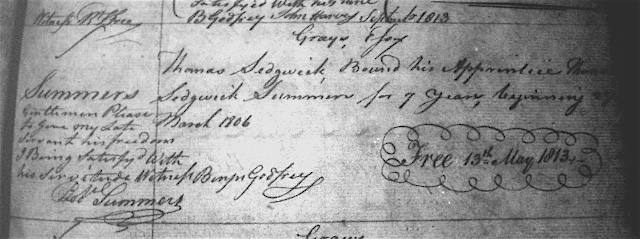 Satisfyd With his time
Witness Wm Free
B Godfrey John Harvey September 1813
Grays, Essex
Thomas Sedgwick, Bound his Apprentice
Summers Sedgwick Summers for 7 Years, beginning
Gentlemen Please March 1806
to Give my Late
Servant his freedom
I Being Satisfyd With
his Servitude Witness Benjn Godfrey
Robt Summers
Free 13th May 1813.
Grays